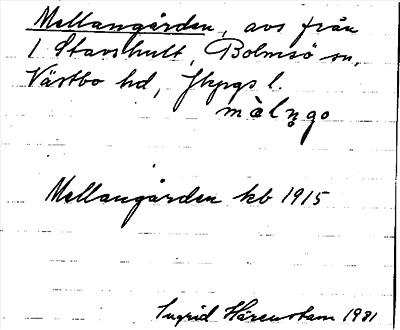 Mellangården, avs från
1 Stavshult, Bolmsö sn,
Västbo hd, Jkpgs l.
màlŋgo
Mellangården kb 1915
Ingrid Härenstam 1981